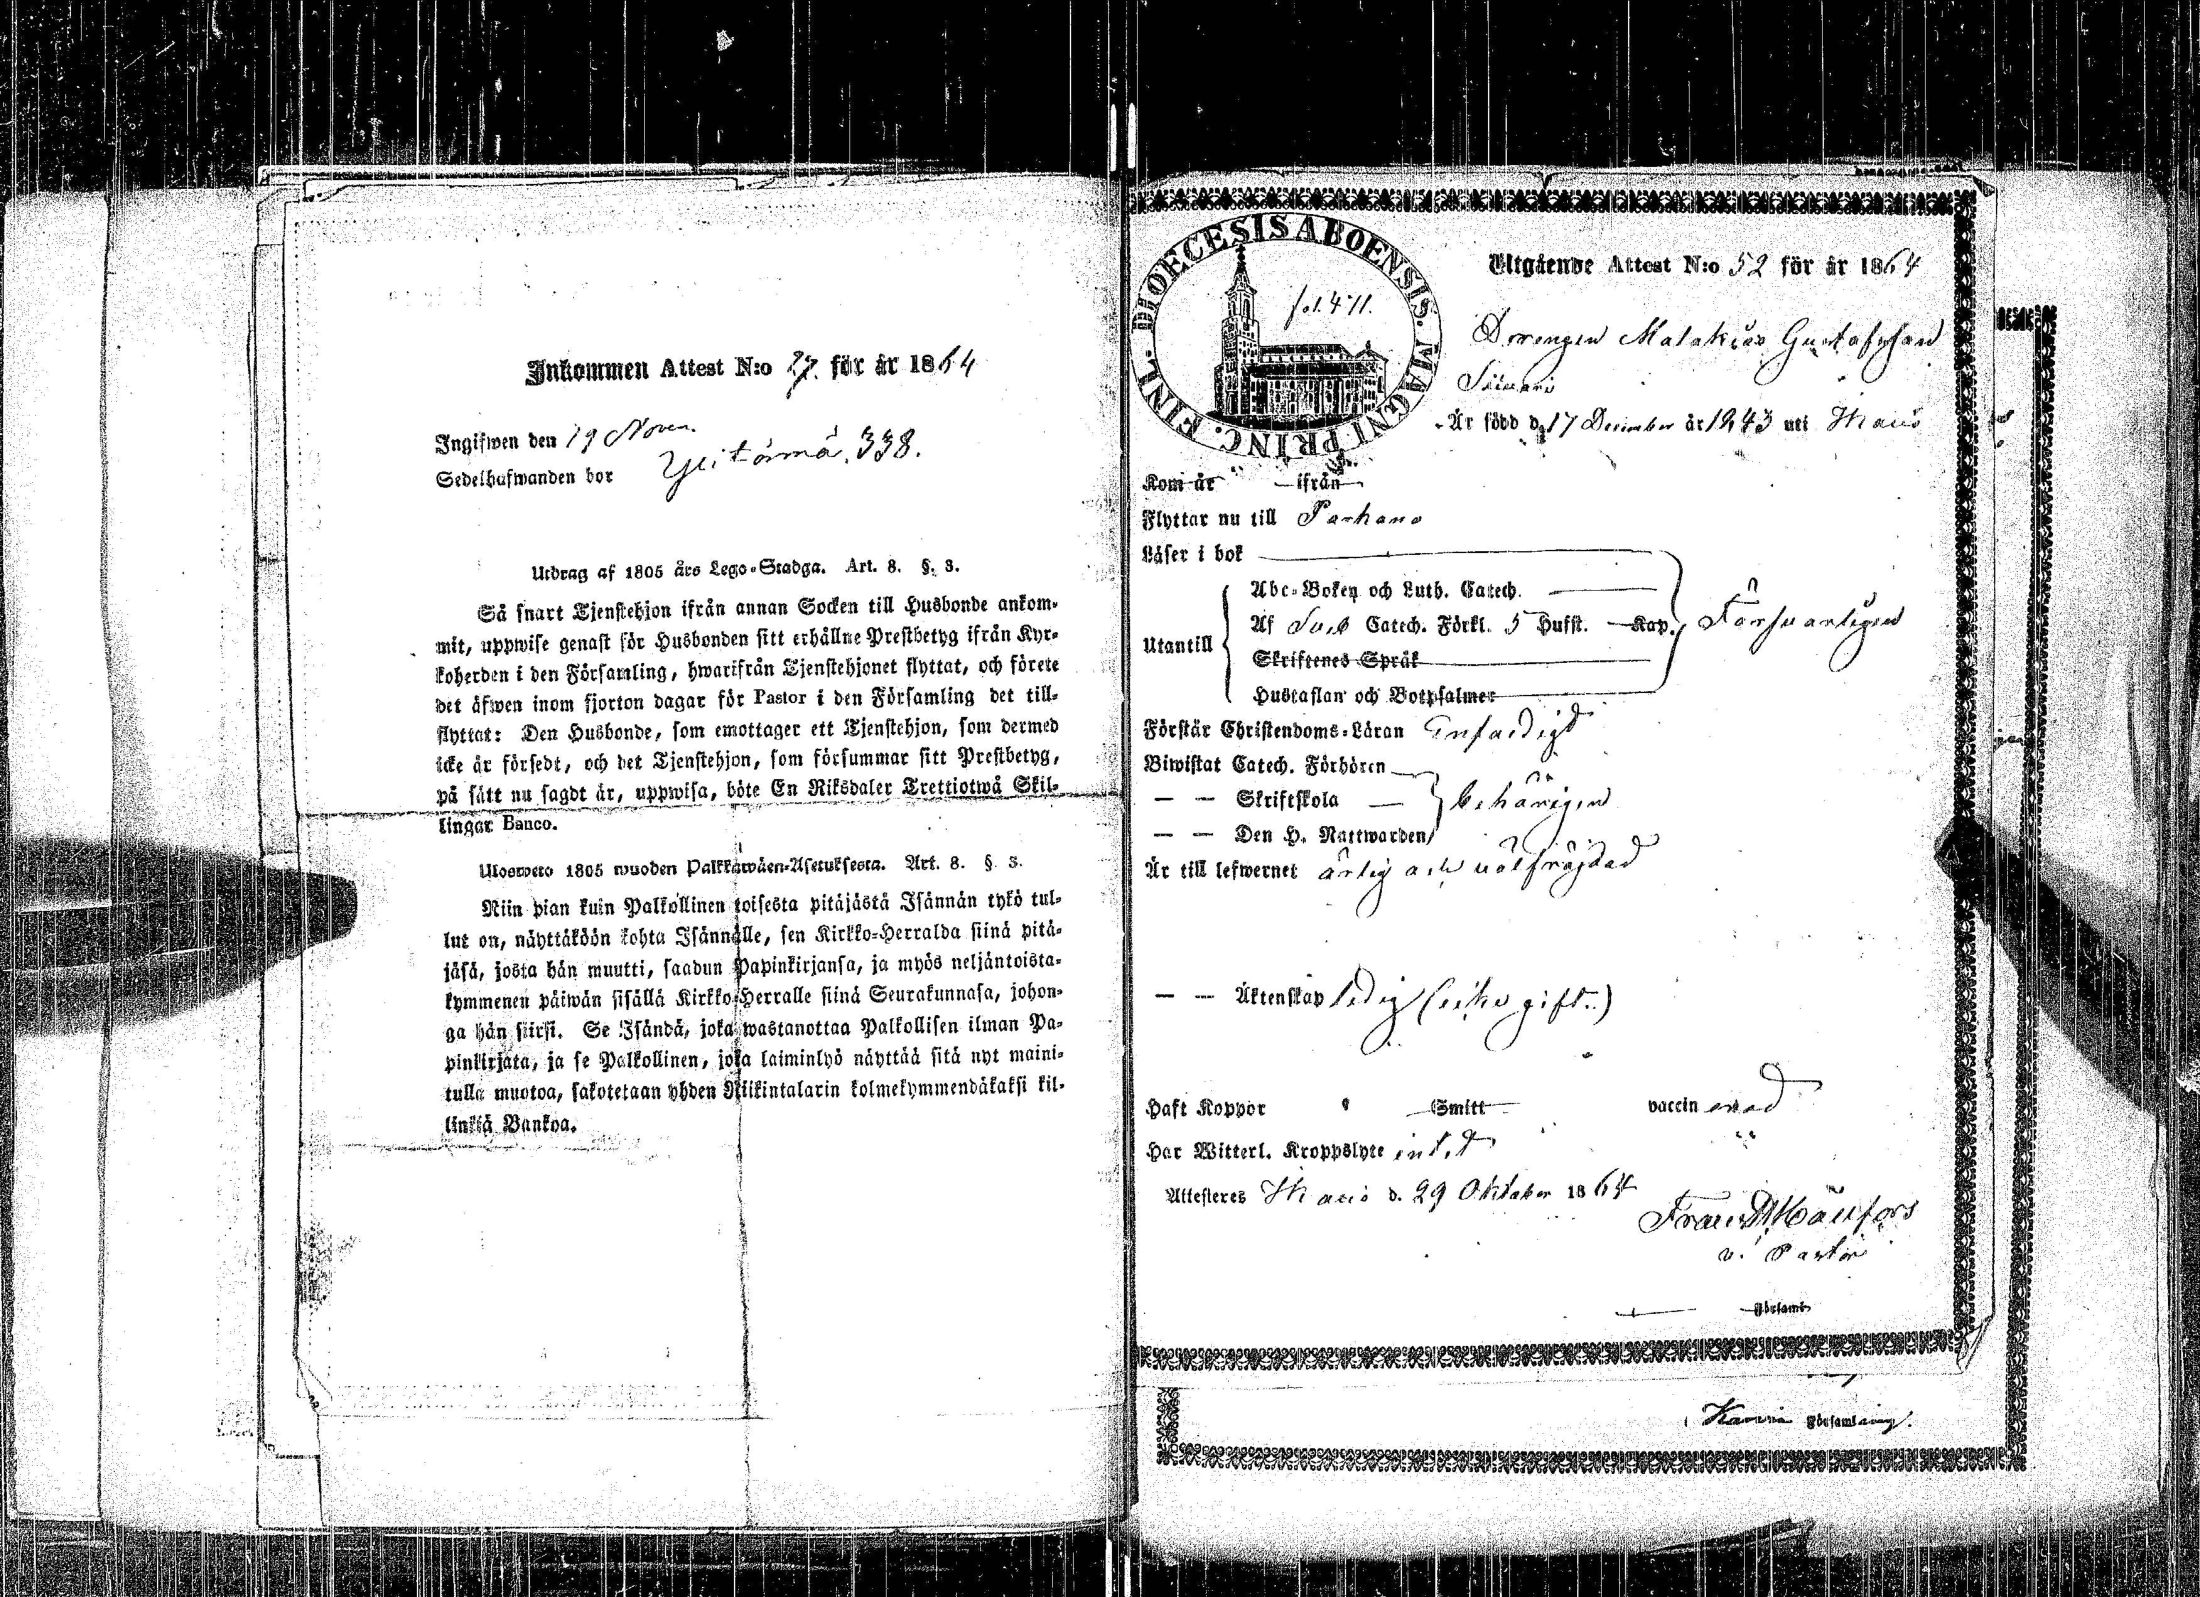 Inkommen Attest N:o 27. för år 1864
Ingifwen den 19 Novem.
Sedelhafwanden bor 338.
Utdrag af 1805 års Lego-Stadga. Art. 8. §. 3.
Så snart Tjenstehjon ifrån annan Socken till Husbonde ankom-
mit, uppwise genast för Husbonden sitt erhållne Prestbetyg ifrån Kyr-
koherden i den Församling, hwarifrån Tjenstehjonet flyttat, och förete
det äfwen inom fjorton dagar för Pastor i den Församling det till-
flyttat: Den Husbonde, som emottager ett Tjenstehjon, som dermed
icke är försedt, och det Tjenstehjon, som försummar sitt Prestbetyg,
på sätt nu sagdt är, uppwisa, böte En Riksdaler Trettiotwå Skil-
lingar Banco.
Ulosweto 1805 wuoden Palkkawäen-Asetuksesta. Art. 8. §. 3.
Niin pian kuin Palkollinen toisesta pitäjästä Isännän tykö tul-
lut on, näyttäköön kohta Isännälle, sen Kirkko-Herralda siinä pitä-
jäsä, josta hän muutti, saadun Papinkirjansa, ja myös neljäntoista-
kymmenen päiwän sisällä Kirkko-Herralle siinä Seurakunnasa, johon-
ga hän siirsi. Se Isändä, joka wastanottaa Palkollisen ilman Pa-
pinkirjata, ja se Palkollinen, joka laiminlyö näyttää sitä nyt maini-
tulla muotoa, sakotetaan yhden Riikintalarin kolmekymmendäkaksi kil-
linkiä Bankoa.
DIOECESIS ABOENSIS. MAGNI PRINC. FINL.
fol. 471.
Utgående Attest N:o 52 för år 1864
Drengen Malakias Gustafsson
Är född d. 17 December år 1843 uti Ikalis
Kom år ifrån
Flyttar nu till Parkano
Läser i bok
Abc-Boken och Luth. Catech.
Utantill
Af Sveb Catech. Förkl. 5 Hufst. Kap. Försvarligen
Skriftenes Språk
Hustaflan och Botpsalmer
Förstår Christendoms-Läran Enfaldigt
Biwistat Catech. Förhören
— — Skriftskola behörigen
— — Den H. Nattwarden
Är till lefwernet ärlig och välfrägdad
— — Äktenskap ledig (icke gift.)
Haft Koppor Smitt vaccinerad
Har Witterl. Kroppslyte intet
Attesteres Ikalis d. 29 Oktober 1864
v. Pastor
Församl.
Församling.